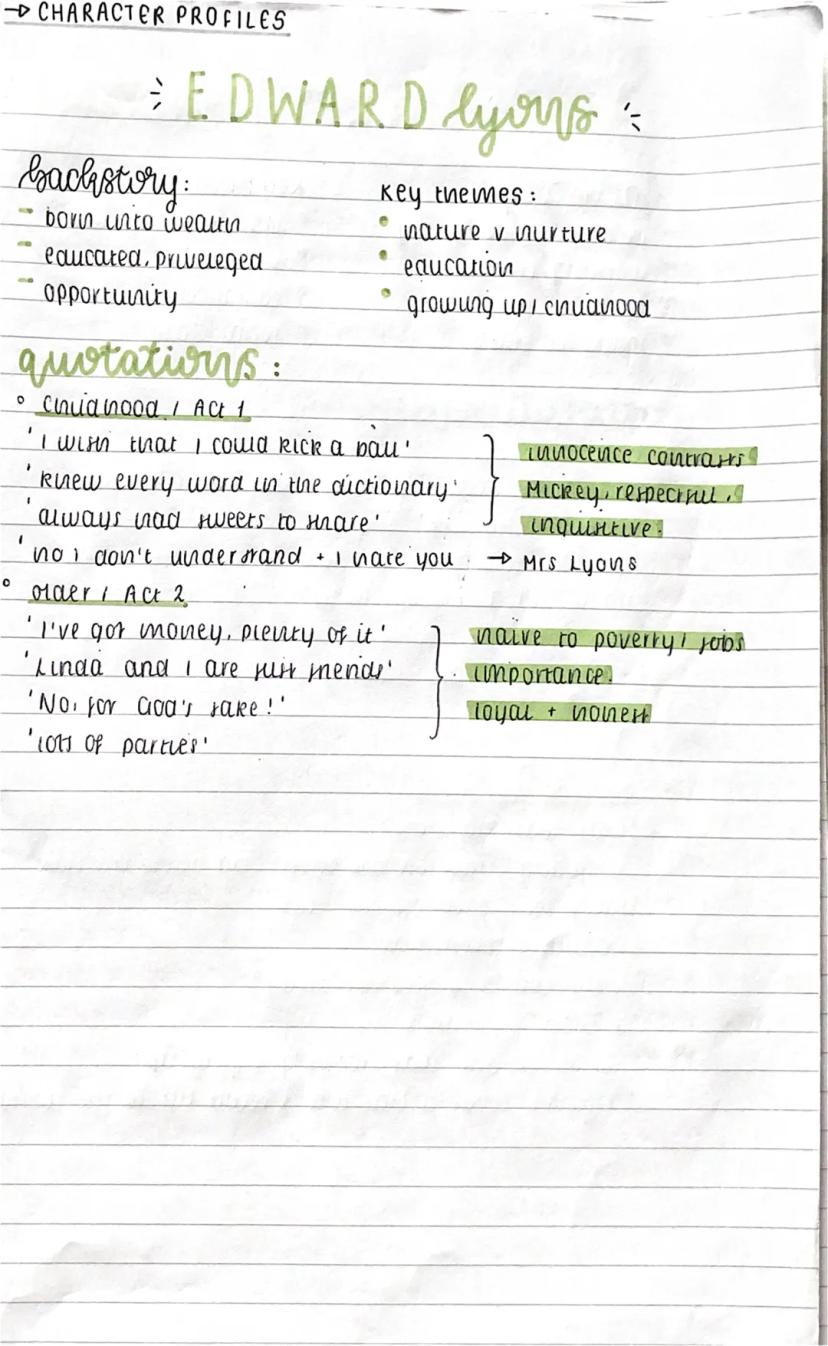 → CHARACTER PROFILES
EDWARD lyons
backstory:
- born into wealth
- educated, priveleged
- opportunity
key themes:
• nature v nurture
• education
• growing up / childhood
quotations:
° childhood / Act 1
'I wish that I could kick a ball'
'knew every word in the dictionary'
'always had sweets to share'
innocence contrasts
Mickey, respectful,
inquisitive.
'no I don't understand + I hate you → Mrs Lyons
° older / Act 2
'I've got money, plenty of it'
'Linda and I are just friends'
'No, for God's sake!'
'lots of parties'
naive to poverty / jobs
importance.
loyal + honest